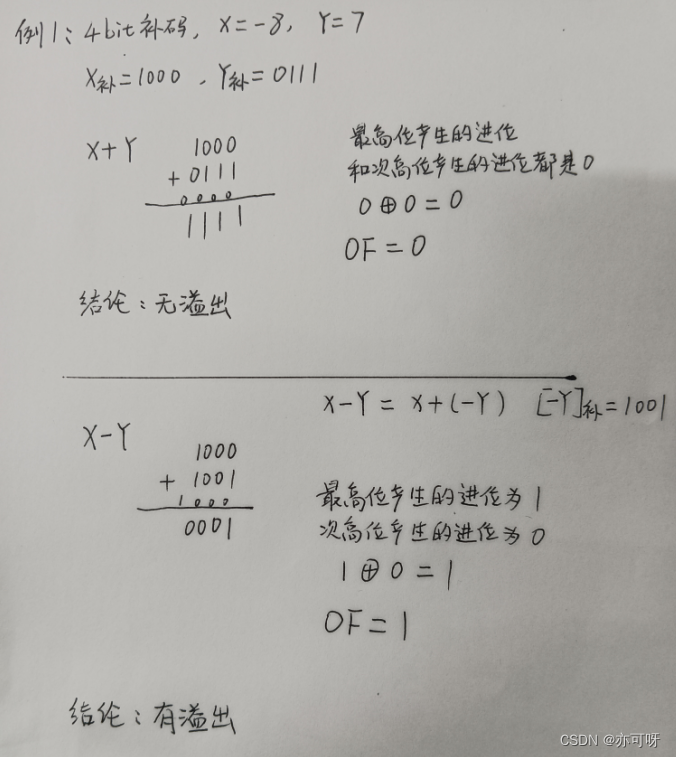 例1：4bit补码，X=-8，Y=7
X补=1000，Y补=0111
X+Y
1000
+ 0111
0000
1111
最高位产生的进位
和次高位产生的进位都是0
0⊕0=0
OF=0
结论：无溢出
X-Y = X+(-Y) [-Y]补=1001
X-Y
1000
+ 1001
1000
0001
最高位产生的进位为1
次高位产生的进位为0
1⊕0=1
OF=1
结论：有溢出
CSDN @亦可呀